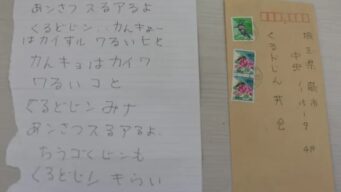 あんさつ スるアるよ
くるどじン、かんキョー
はカイすル ワるいヒと
かんキョはカイワ
ワるいコと
くるどじン みナ
あンさつ スるアるよ、
ちうゴくじンも
くるどじン きらい
埼玉県 蕨市
中央
くるドじん